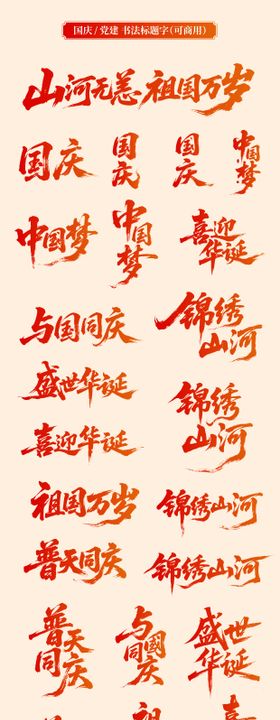 国庆/党建 书法标题字(可商用)
山河无恙 祖国万岁
国庆
国庆
国庆
中国梦
中国梦
中国梦
喜迎
华诞
与国同庆
锦绣
山河
盛世华诞
锦绣
山河
喜迎华诞
祖国万岁
锦绣山河
普天同庆
锦绣山河
普天
同庆
与國
同庆
盛世
华诞